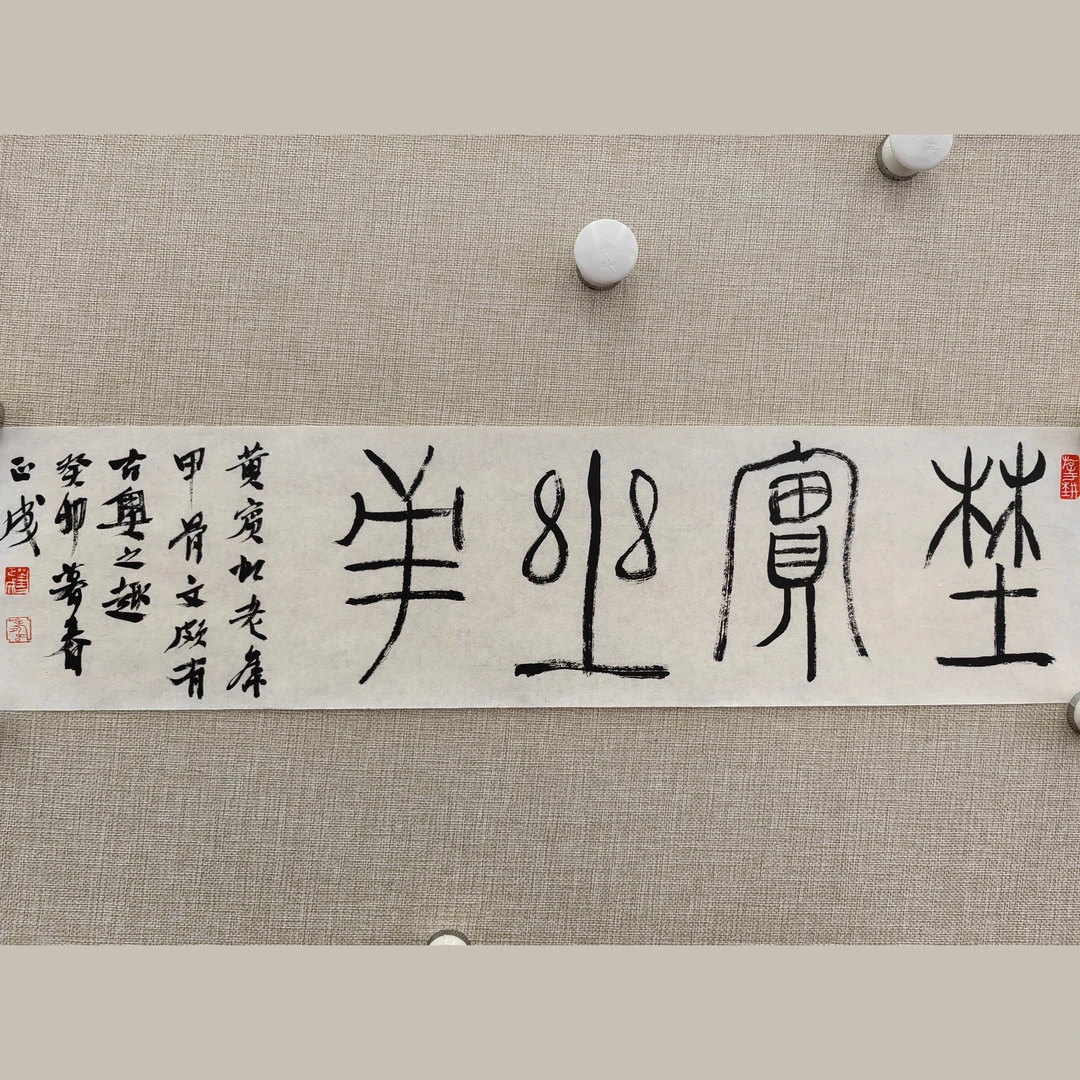 埜實幽
黃賓虹老年
甲骨文頗有
古奧之趣
癸卯暮春
正成